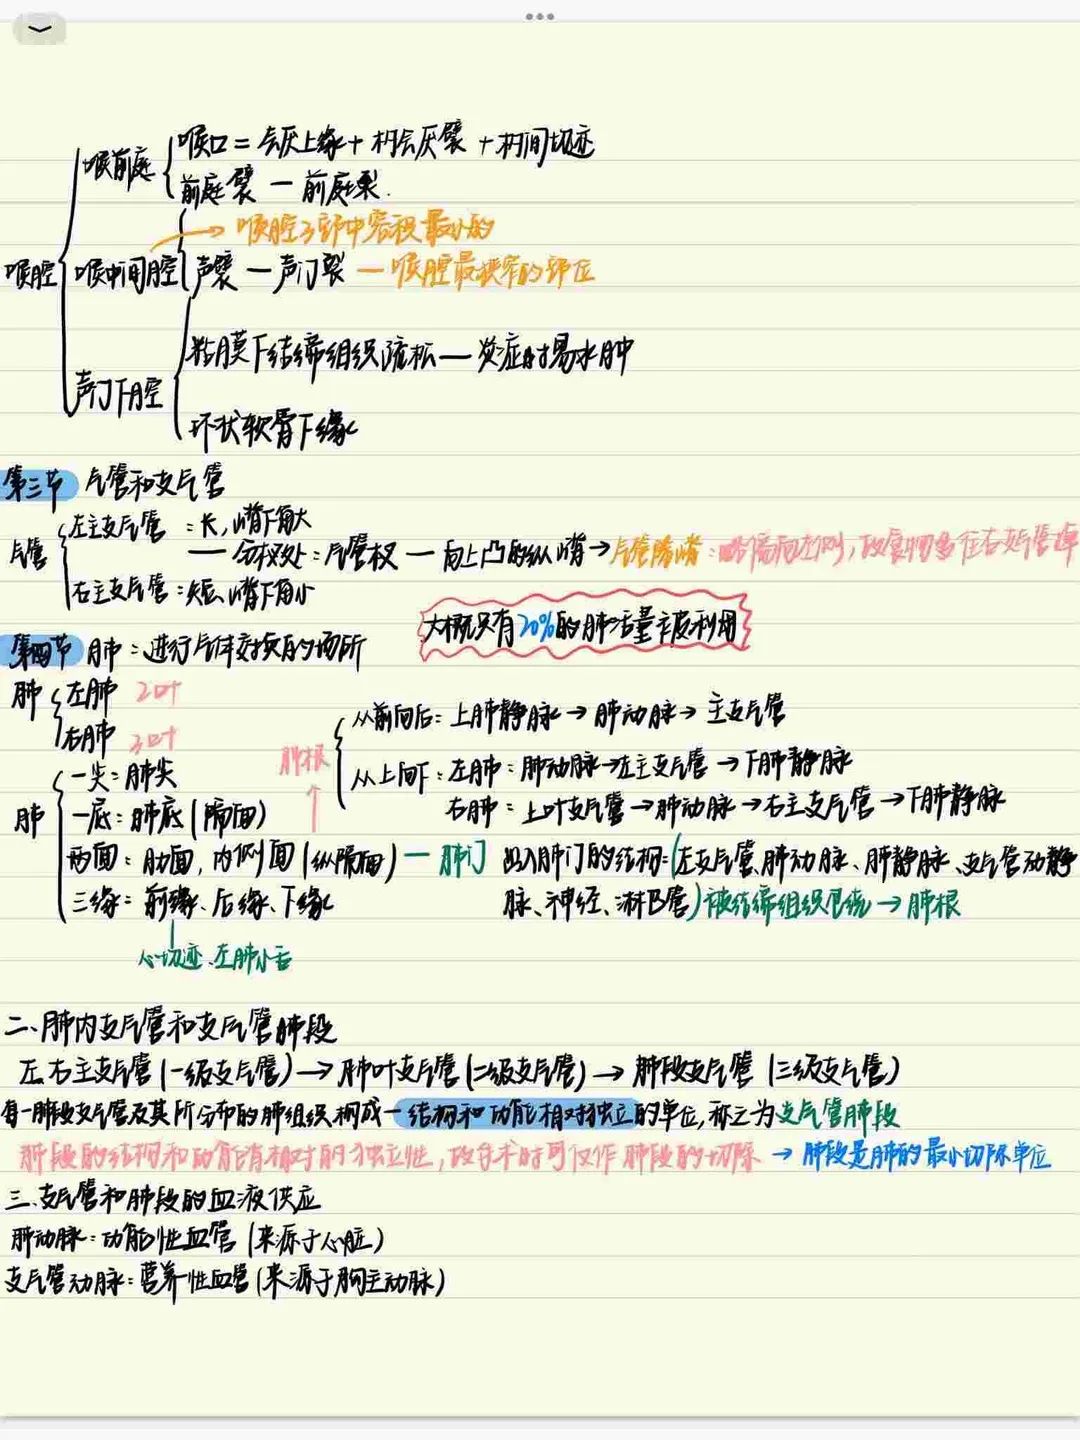 喉腔
喉前庭
喉口 = 会厌上缘 + 杓会厌襞 + 杓间切迹
前庭襞 — 前庭裂.
喉中间腔 → 喉腔3部中容积最小的
声襞 — 声门裂 — 喉腔最狭窄的部位
声门下腔
粘膜下结缔组织疏松 — 炎症时易水肿
环状软骨下缘
第三节 气管和支气管
气管
左主支气管 : 长, 嵴下角大
— 分杈处 : 气管杈 — 向上凸的纵嵴 → 气管隆嵴 : 略偏向左侧, 故食物多往右支气管掉
右主支气管 : 短, 嵴下角小
大概只有20%的肺活量被利用
第四节 肺 : 进行气体交换的场所
肺
左肺 2叶
右肺 3叶
肺根
从前向后 : 上肺静脉 → 肺动脉 → 主支气管
从上向下 : 左肺 : 肺动脉 → 左主支气管 → 下肺静脉
右肺 : 上叶支气管 → 肺动脉 → 右主支气管 → 下肺静脉
肺
一尖 : 肺尖
一底 : 肺底 (膈面)
两面 : 肋面, 内侧面 (纵隔面) — 肺门 出入肺门的结构 : (左支气管、肺动脉、肺静脉、支气管动静
脉、神经、淋巴管) 被结缔组织包绕 → 肺根
三缘 : 前缘、后缘、下缘
心切迹、左肺小舌
二、肺内支气管和支气管肺段
左、右主支气管 (一级支气管) → 肺叶支气管 (二级支气管) → 肺段支气管 (三级支气管)
每一肺段支气管及其所分布的肺组织构成一结构和功能相对独立的单位, 称之为支气管肺段
肺段的结构和功能有相对的独立性, 故手术时可仅作肺段的切除 → 肺段是肺的最小切除单位
三、支气管和肺段的血液供应
肺动脉 : 功能性血管 (来源于心脏)
支气管动脉 : 营养性血管 (来源于胸主动脉)